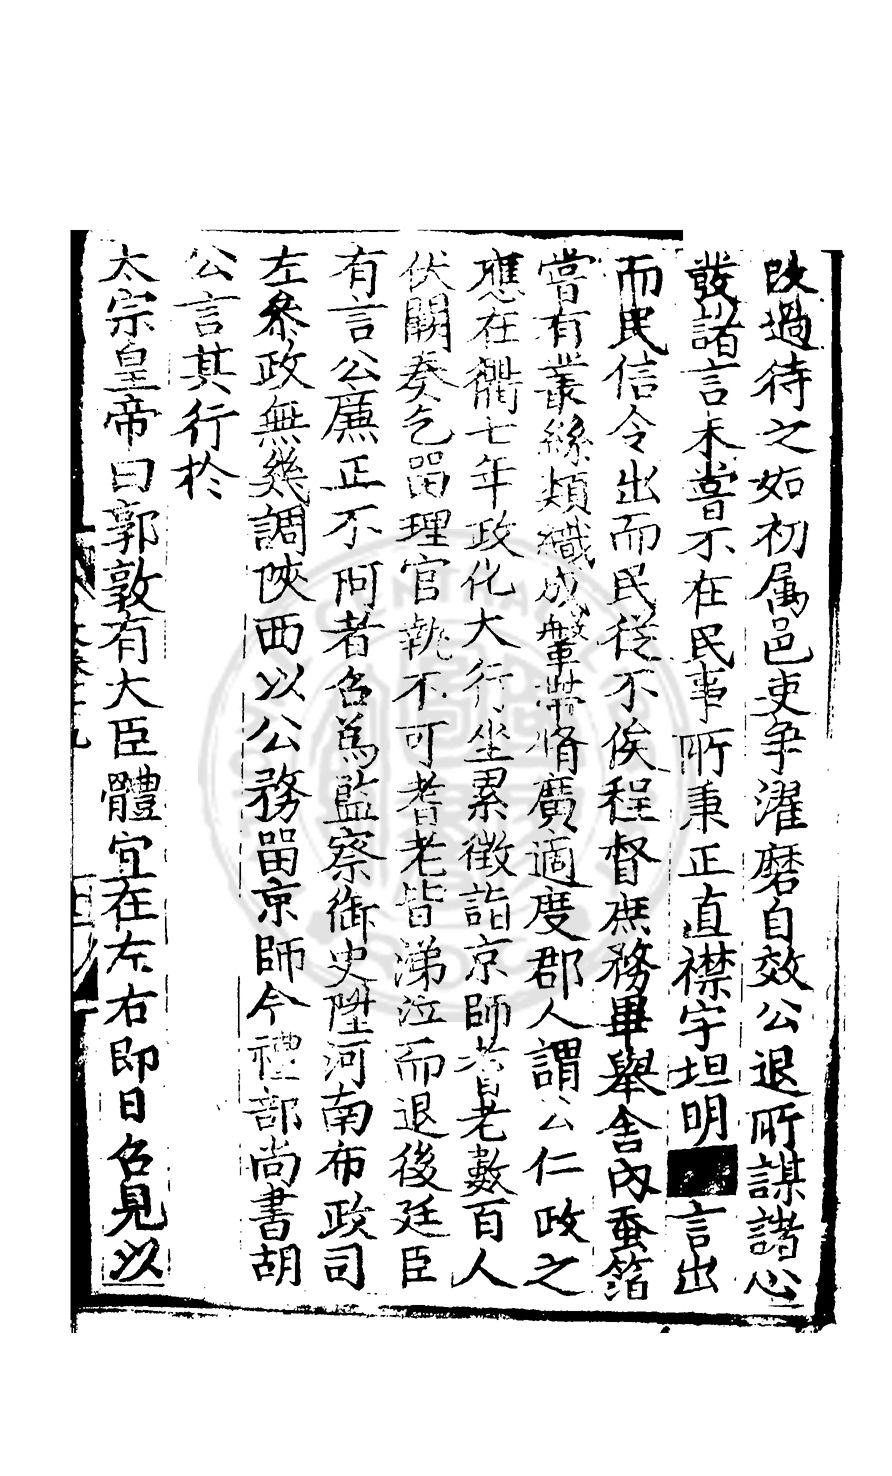 改過待之如初属邑吏争濯磨自效公退所謀諸心
發諸言未嘗不在民事所秉正直襟宇坦明言出
而民信令出而民從不俟程督庶務畢舉舍內蚕箔
嘗有叢絲類織成鞶帶脩廣適度郡人謂公仁政之
應在衢七年政化大行坐累徵詣京師耆老數百人
伏闕奏乞畱理官執不可耆老皆涕泣而退後廷臣
有言公廉正不阿者名爲監察御史陞河南布政司
左叅政無幾調陜西以公務畱京師今禮部尚書胡
公言其行於
太宗皇帝曰郭敦有大臣體宜在左右即日名見以